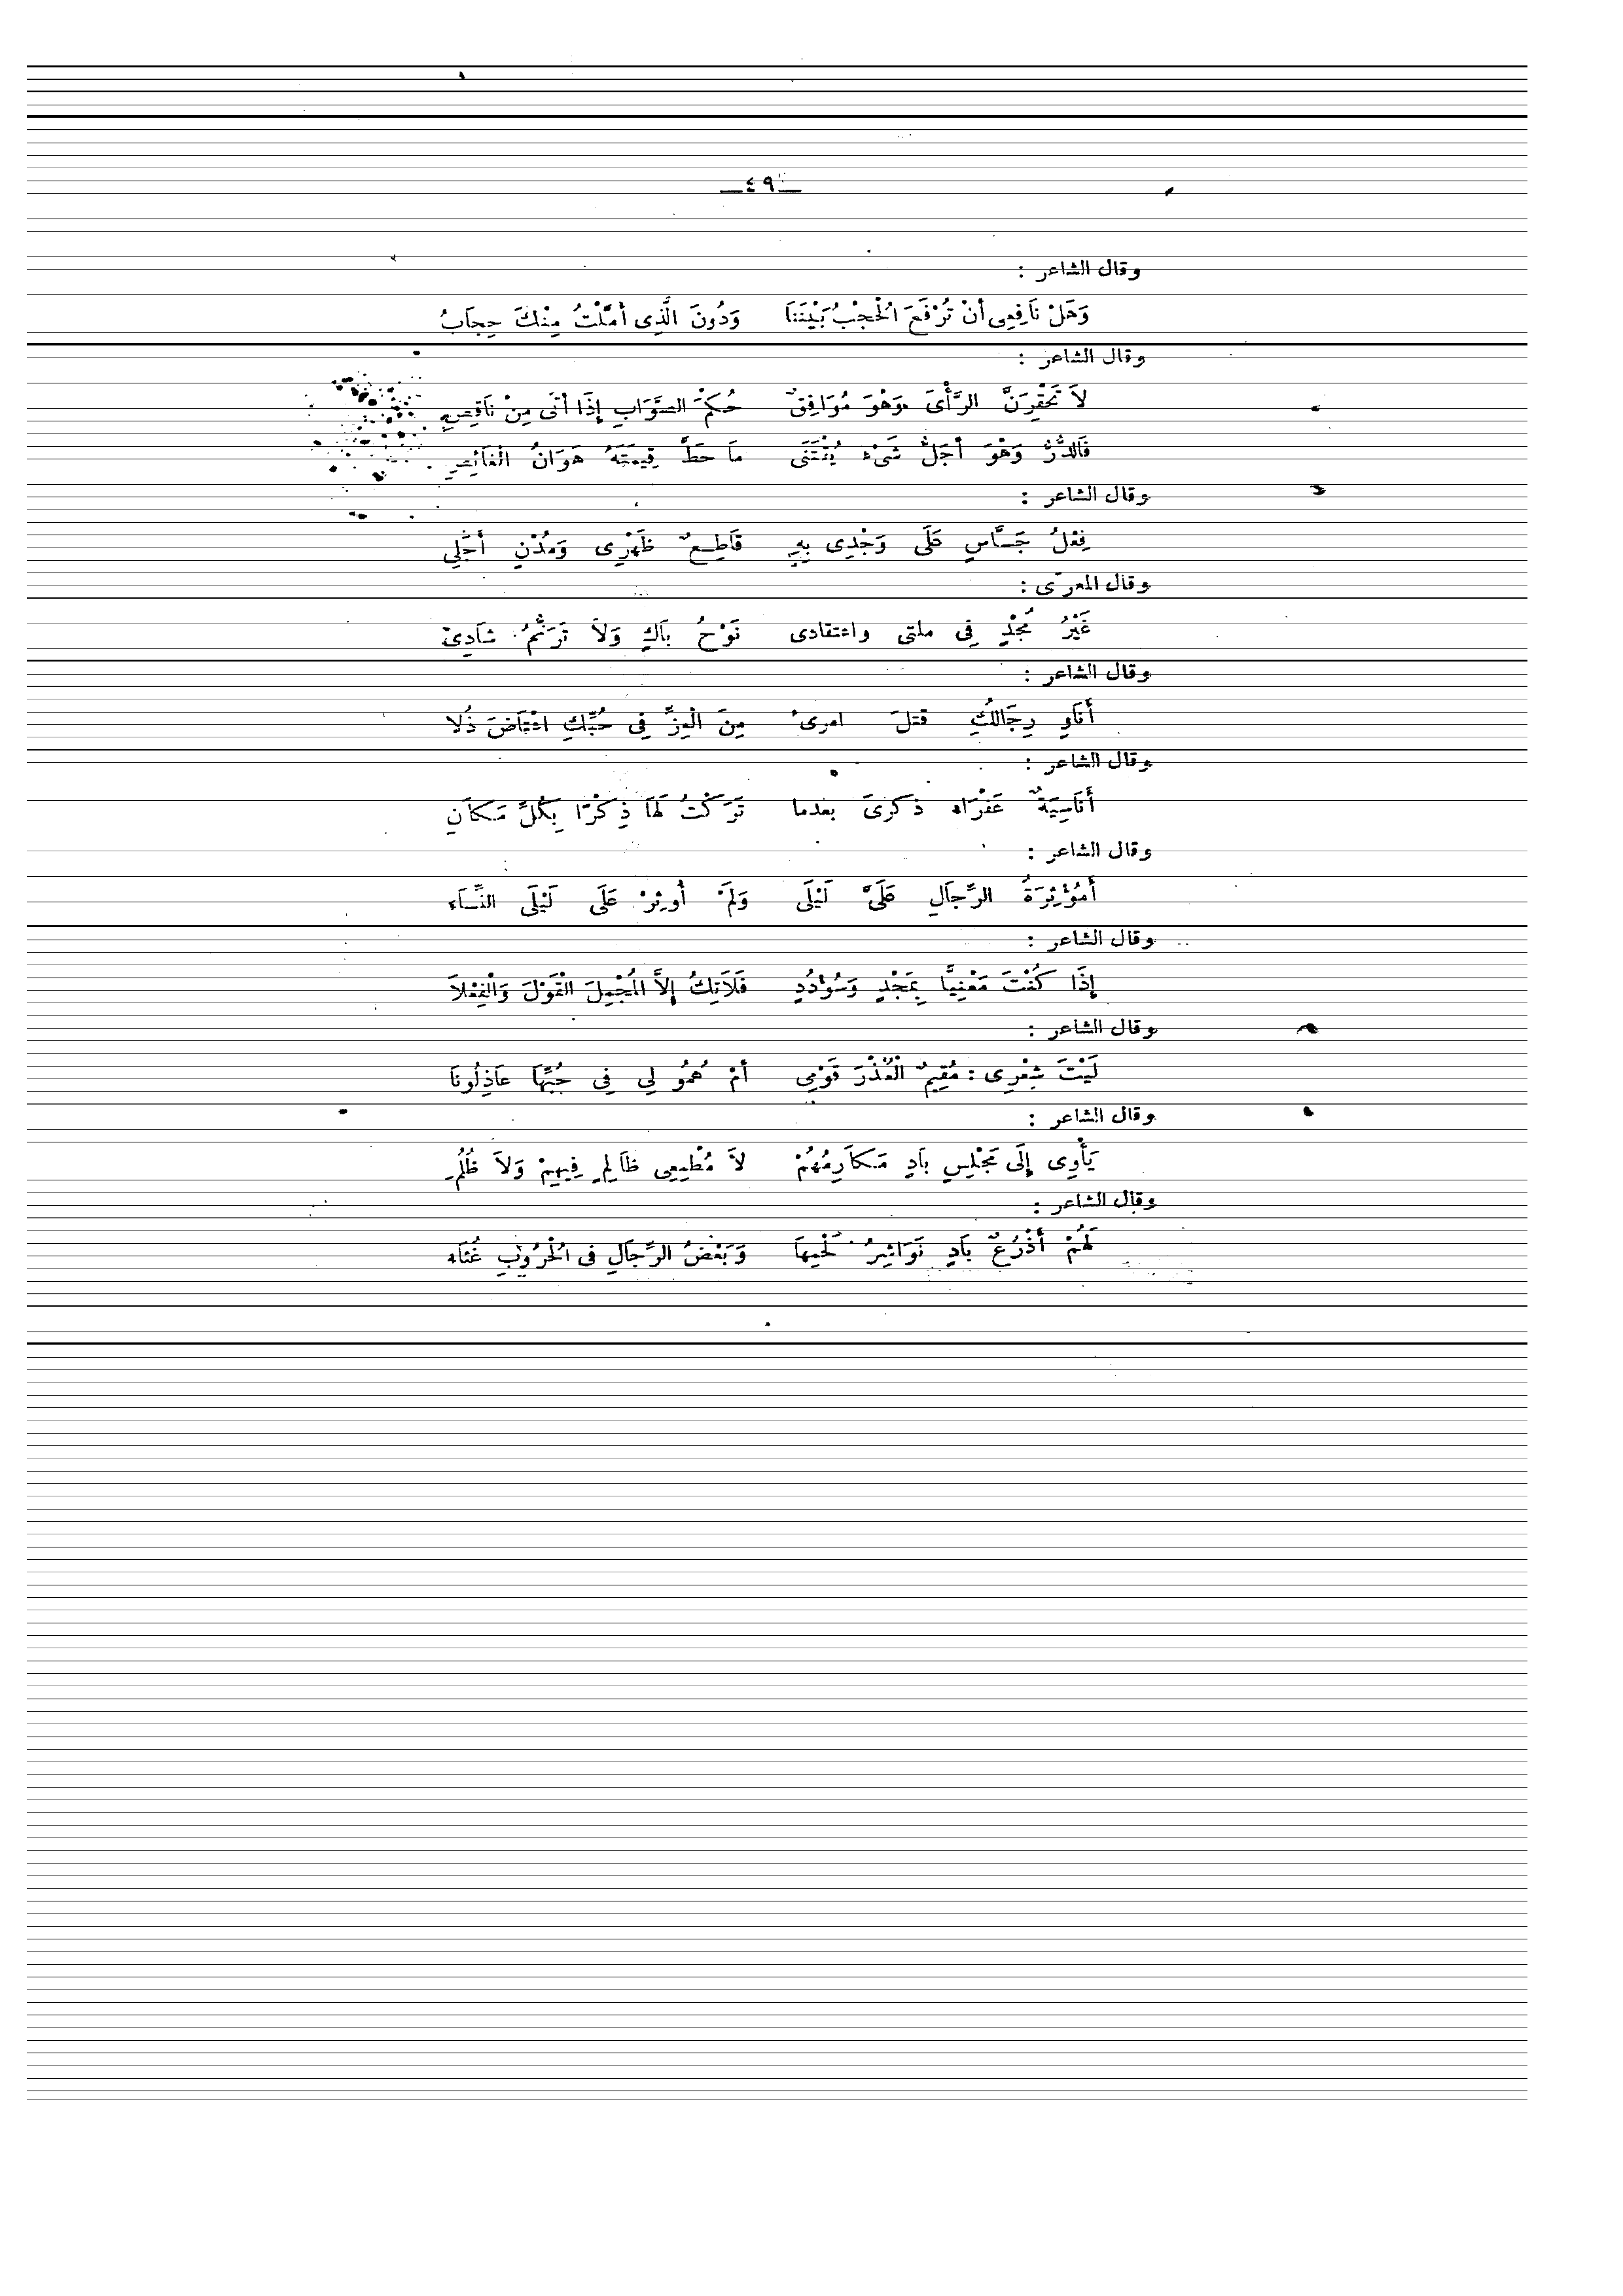 ـ٤٩ـ
وقال الشاعر :
وَهَلْ نَافِعِى أَنْ تُرْفَعَ الْحُجْبُ بَيْنَنَا وَدُونَ الَّذِى أَمَّلْتُ مِنْكَ حِجَابُ
وقال الشاعر :
لاَ تَحْقِرَنَّ الرَّأْىَ وَهْوَ مُوَافِقٌ حُكْمَ الصَّوَابِ إِذَا أَتَى مِنْ نَاقِصِ
فَالدُّرُّ وَهْوَ أَجَلُّ شَىْءٍ يُقْتَنَى مَا حَطَّ قِيمَتَهُ هَوَانُ الْغَائِصِ
وقال الشاعر :
فِعْلُ جَسَّاسٍ عَلَى وَجْدِى بِهِ قَاطِعٌ ظَهْرِى وَمُدْنٍ أَجَلِى
وقال المعرّى :
غَيْرُ مُجْدٍ فِى ملتى واعتقادى نَوْحُ بَاكٍ وَلاَ تَرَنُّمُ شَادِى
وقال الشاعر :
أَنَاوٍ رِجَالُكِ قتلَ امرىءٍ مِنَ الْعِزِّ فِى حُبِّكِ اعْتَاضَ ذُلا
وقال الشاعر :
أَنَاسِيَةٌ عَفْرَاء ذكرىَ بعدما تَرَكْتُ لَهَا ذِكْرًا بِكُلِّ مَكَانِ
وقال الشاعر :
أَمُؤْثِرَةُ الرِّجَالِ عَلَىَّ لَيْلَى وَلَمْ أُوثِرْ عَلَى لَيْلَى النِّسَاء
وقال الشاعر :
إِذَا كُنْتَ مَعْنِيًّا بِمَجْدٍ وَسُؤْدُدٍ فَلاَتَكُ إِلاَّ الْمُجْمِلَ الْقَوْلَ وَالْفِعْلاَ
وقال الشاعر :
لَيْتَ شِعْرِى : مُقِيمٌ الْعُذْرَ قَوْمِى أَمْ هُمُو لِي فِى حُبِّهَا عَاذِلُونَا
وقال الشاعر :
يَأْوِى إِلَى مَجْلِسٍ بَادٍ مَكَارِمُهُمْ لاَ مُطْمِعِى ظَالِمٍ فِيهِمْ وَلاَ ظُلُمِ
وقال الشاعر :
لَهُمْ أَذْرُعٌ بَادٍ نَوَاشِرُ لَحْمِهَا وَبَعْضُ الرِّجَالِ فى الْحُرُوبِ غُثَاء